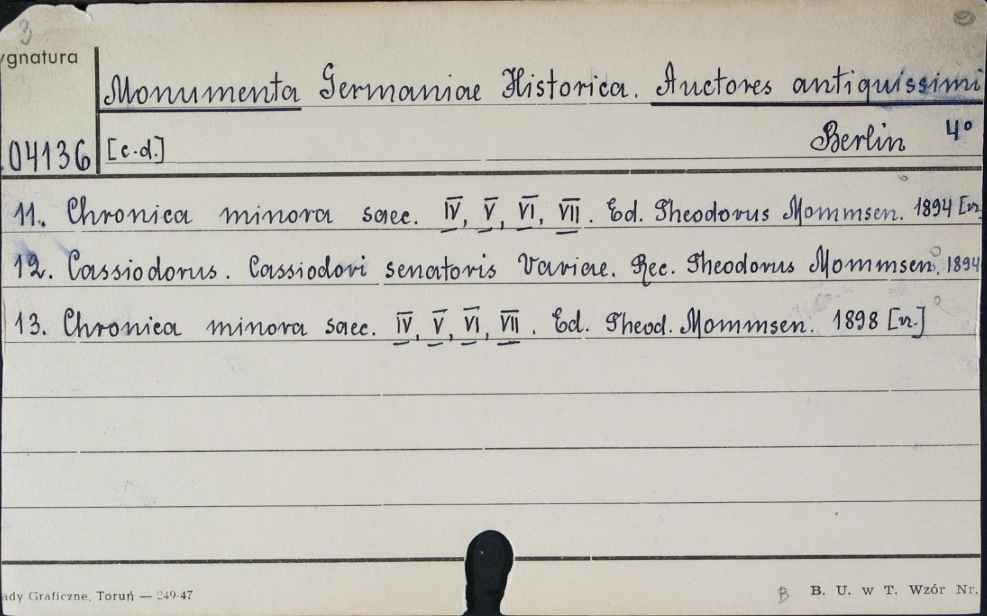 3
ygnatura
Monumenta Germaniae Historica. Auctores antiquissimi
04136 [c.d.] Berlin 4°
11. Chronica minora saec. IV, V, VI, VII. Ed. Theodorus Mommsen. 1894
12. Cassiodorus. Cassiodori senatoris Variae. Rec. Theodorus Mommsen. 1894
13. Chronica minora saec. IV, V, VI, VII. Ed. Theod. Mommsen. 1898
ady Graficzne, Toruń — 249-47 B B. U. w T. Wzór Nr.